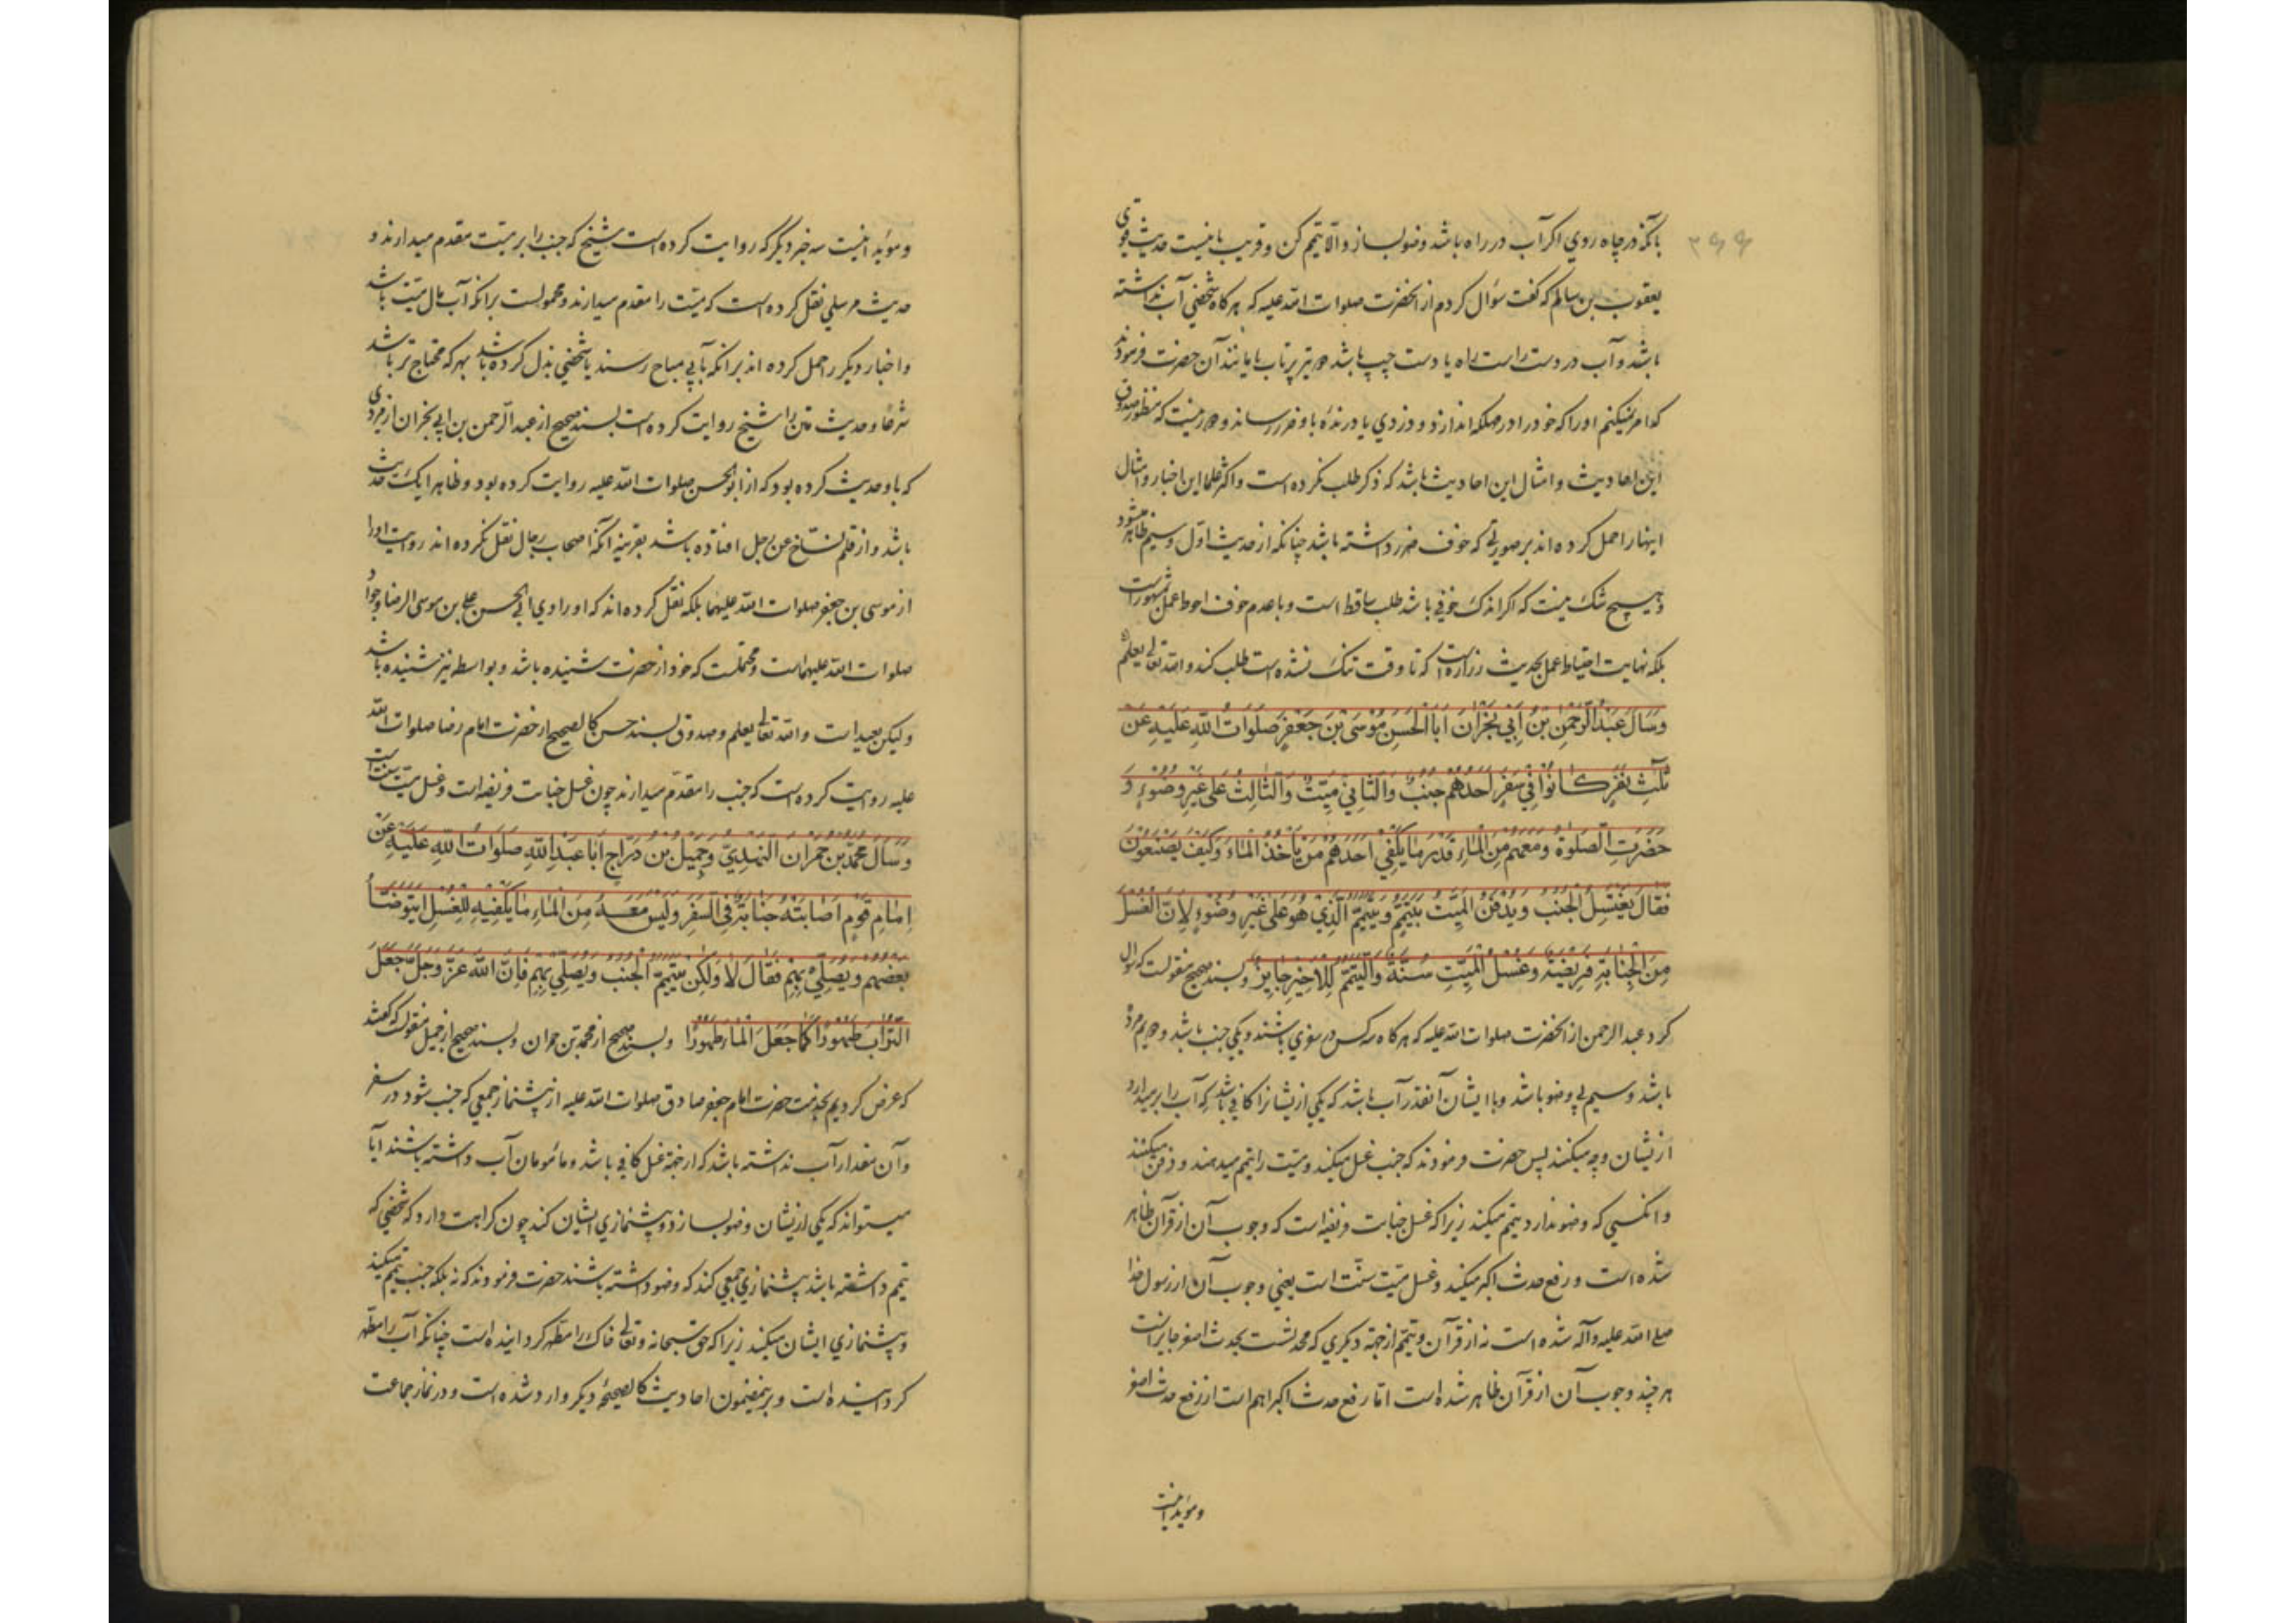 بآنکه در چاه روی اکر آب در راه باشد وضو بساز و الّا تیمم کن و قریب باینست حدیث قوی
یعقوب بن سالم که کفت سؤال کردم از انحضرت صلوات اللّه علیه که هرکاه شخصی آب نداشته
باشد و آب در دست راست راه یا دست چپ باشد دو تیر پرتاب یا مانند آن حضرت فرمودند
که امر نمیکنم او را که خود را در مهلکه اندازد و دزدی یا درندهٔ باو ضرر رساند و دور نیست که منظور صدوق
این احادیث و امثال این احادیث باشد که ذکر طلب نکرده است و اکثر علما این اخبار و امثال
اینها را حمل کرده اند بر صورتی که خوف ضرر داشته باشد چنانکه از حدیث اوّل و سیم ظاهر میشود
و هیچ شک نیست که اکر اندک خوفی باشد طلب ساقط است و با عدم خوف احوط عمل بمشهور است
بلکه نهایت احتیاط عمل بحدیث زراره است که تا وقت تنک نشده است طلب کند و اللّه تعالی یعلم
وَسَأَلَ عَبْدُ الرَّحْمٰنِ بْنُ أَبِي نَجْرَانَ أَبَا الْحَسَنِ مُوْسَى بْنَ جَعْفَرٍ صَلَوَاتُ اللّٰهِ عَلَيْهِ عَنْ
ثَلٰثَةِ نَفَرٍ كَانُوْا فِي سَفَرٍ اَحَدُهُمْ جُنُبٌ وَالثَّانِي مَيِّتٌ وَالثَّالِثُ عَلٰى غَيْرِ وُضُوْءٍ وَ
حَضَرَتِ الصَّلٰوةُ وَمَعَهُمْ مِنَ الْمَاءِ قَدْرُ مَا يَكْفِي اَحَدَهُمْ مَنْ يَأْخُذُ الْمَاءَ وَكَيْفَ يَصْنَعُوْنَ
فَقَالَ يَغْتَسِلُ الْجُنُبُ وَيُدْفَنُ الْمَيِّتُ بِتَيَمُّمٍ وَيَتَيَمَّمُ الَّذِيْ هُوَ عَلٰى غَيْرِ وُضُوْءٍ لِاَنَّ الْغُسْلَ
مِنَ الْجَنَابَةِ فَرِيْضَةٌ وَغُسْلَ الْمَيِّتِ سُنَّةٌ وَالتَّيَمُّمَ لِلْاٰخِرِ جَايِزٌ و بسند صحیح منقولست که سؤال
کرد عبد الرحمن از انحضرت صلوات اللّه علیه که هرکاه سه کس در سفری باشند و یکی جنب باشد و دویم مرده
باشد و سیم بی وضو باشد و با ایشان آنقدر آب باشد که یکی از یشانرا کافی باشد که آب را برمیدارد
از یشان و چه میکنند پس حضرت فرمودند که جنب غسل میکند و میّت را تیمم میدهند و دفن میکنند
و انکسی که وضو ندارد تیمم میکند زیرا که غسل جنابت فریضه است که وجوب آن از قرآن ظاهر
شده است و رفع حدث اکبر میکند و غسل میّت سنّت است یعنی وجوب آن از رسول خدا
صلی اللّه علیه و آله شده است نه از قرآن و تیمّم از جهة دیکری که محدثست بحدث اصغر جایز است
هر چند وجوب آن از قرآن ظاهر شده است امّا رفع حدث اکبر اهم است از رفع حدث اصغر
و مؤید اینست
و مؤید اینست سه خبر دیکر که روایت کرده است شیخ که جنب را بر میّت مقدم میدارند و
حدیث مرسلی نقل کرده است که میّت را مقدم میدارند و محمولست بر انکه آب مال میّت باشد
و اخبار دیکر را حمل کرده اند بر انکه بآبی مباح رسند یا شخصی بذل کرده باشد بهر که محتاج تر باشد
شرعا و حدیث متن را شیخ روایت کرده است بسند صحیح از عبد الرّحمن بن ابی نجران از مردی
که باو حدیث کرده بود که از ابو الحسن صلوات اللّه علیه روایت کرده بود و ظاهرا یک حدیث
باشد و از قلم نساخ عن رجل افتاده باشد بقرینه آنکه اصحاب رجال نقل نکرده اند روایت او را
از موسی بن جعفر صلوات اللّه علیهما بلکه نقل کرده اند که او راوی ابی الحسن علی بن موسی الرضا و جواد
صلوات اللّه علیهماست و محتملست که خود از حضرت شنیده باشد و بواسطه نیز شنیده باشد
و لیکن بعید است و اللّه تعالی یعلم و صدوق بسند حسن کالصحیح از حضرت امام رضا صلوات اللّه
علیه روایت کرده است که جنب را مقدّم میدارند چون غسل جنابت فریضه است و غسل میّت سنّت است
وَسَأَلَ مُحَمَّدُ بْنُ حُمْرَانَ النَّهْدِيُّ وَجَمِيْلُ بْنُ دَرَّاجٍ اَبَا عَبْدِ اللّٰهِ صَلَوَاتُ اللّٰهِ عَلَيْهِ عَنْ
اِمَامِ قَوْمٍ اَصَابَتْهُ جَنَابَةٌ فِي السَّفَرِ وَلَيْسَ مَعَهُ مِنَ الْمَاءِ مَا يَكْفِيْهِ لِلْغُسْلِ اَيَتَوَضَّأُ
بَعْضُهُمْ وَيُصَلِّيْ بِهِمْ فَقَالَ لَا وَلٰكِنْ يَتَيَمَّمُ الْجُنُبُ وَيُصَلِّيْ بِهِمْ فَاِنَّ اللّٰهَ عَزَّ وَجَلَّ جَعَلَ
التُّرَابَ طَهُوْرًا كَمَا جَعَلَ الْمَاءَ طَهُوْرًا و بسند صحیح از محمّد بن حمران و بسند صحیح از جمیل منقولست که کفتند
که عرض کردیم بخدمت حضرت امام جعفر صادق صلوات اللّه علیه از پیشنماز جمعی که جنب شود در سفر
و آن مقدار آب نداشته باشد که از جهة غسل کافی باشد و مأمومان آب داشته باشند آیا
میتواند که یکی از یشان وضو بسازد و پیشنمازی ایشان کند چون کراهت دارد که شخصی که
تیمم داشته باشد پیشنمازی جمعی کند که وضو داشته باشند حضرت فرمودند که نه بلکه جنب تیمّم میکند
و پیشنمازی ایشان میکند زیرا که حق سبحانه و تعالی خاک را مطهر کردانیده است چنانکه آب را مطهّر
کردانیده است و برینمضمون احادیث کالصحیحهٔ دیکر وارد شده است و در نماز جماعت